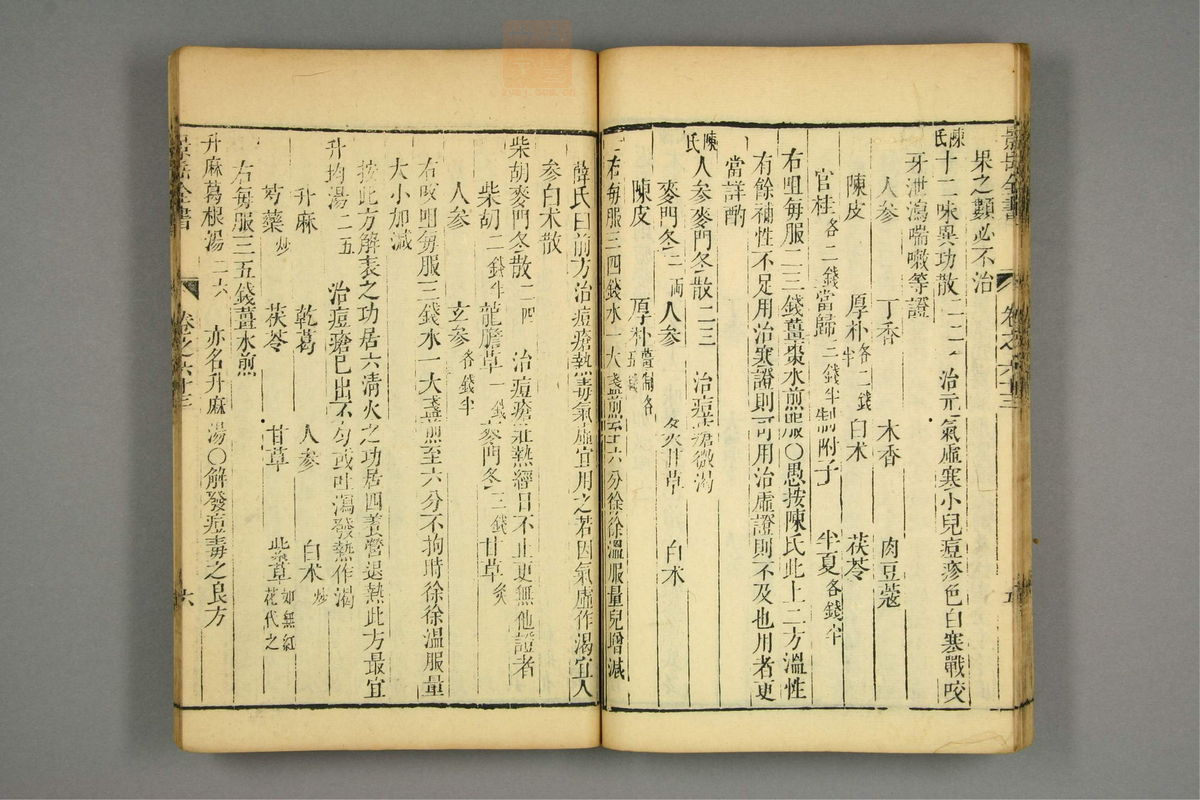 景岳全書 卷之六十三 五
果之類必不治
陳氏十二味異功散二二 治元氣虛寒小兒痘疹色白寒戰咬
牙泄瀉喘嗽等證
人参 丁香 木香 肉豆蔻
陳皮 厚朴各二錢半 白朮 茯苓
官桂各二錢 當歸三錢半 制附子 半夏各錢半
右咀每服二三錢薑棗水煎服○愚按陳氏此上二方溫性
有餘補性不足用治寒證則可用治虛證則不及也用者更
當詳酌
陳氏人参麥門冬散二三 治痘瘡微渴
麥門冬二兩 人参 炙甘草 白朮
陳皮 厚朴薑制各五錢
右每服三四錢水一大盞煎至六分徐徐溫服量兒增減
薛氏曰前方治痘瘡熱毒氣虛宜用之若因氣虛作渴宜人
参白朮散
柴胡麥門冬散二四 治痘瘡壯熱經日不止更無他證者
柴胡二錢半 龍膽草一錢 麥門冬三錢 甘草炙
人参 玄参各錢半
右㕮咀每服三錢水一大盞煎至六分不拘時徐徐溫服量
大小加減
按此方解表之功居六清火之功居四養營退熱此方最宜
升均湯二五 治痘瘡已出不勻或吐瀉發熱作渴
升麻 乾葛 人参 白朮炒
芍藥炒 茯苓 甘草 紫草如無紅花代之
右每服三五錢薑水煎
升麻葛根湯二六 亦名升麻湯○解發痘毒之良方
景岳全書 卷之六十三 六